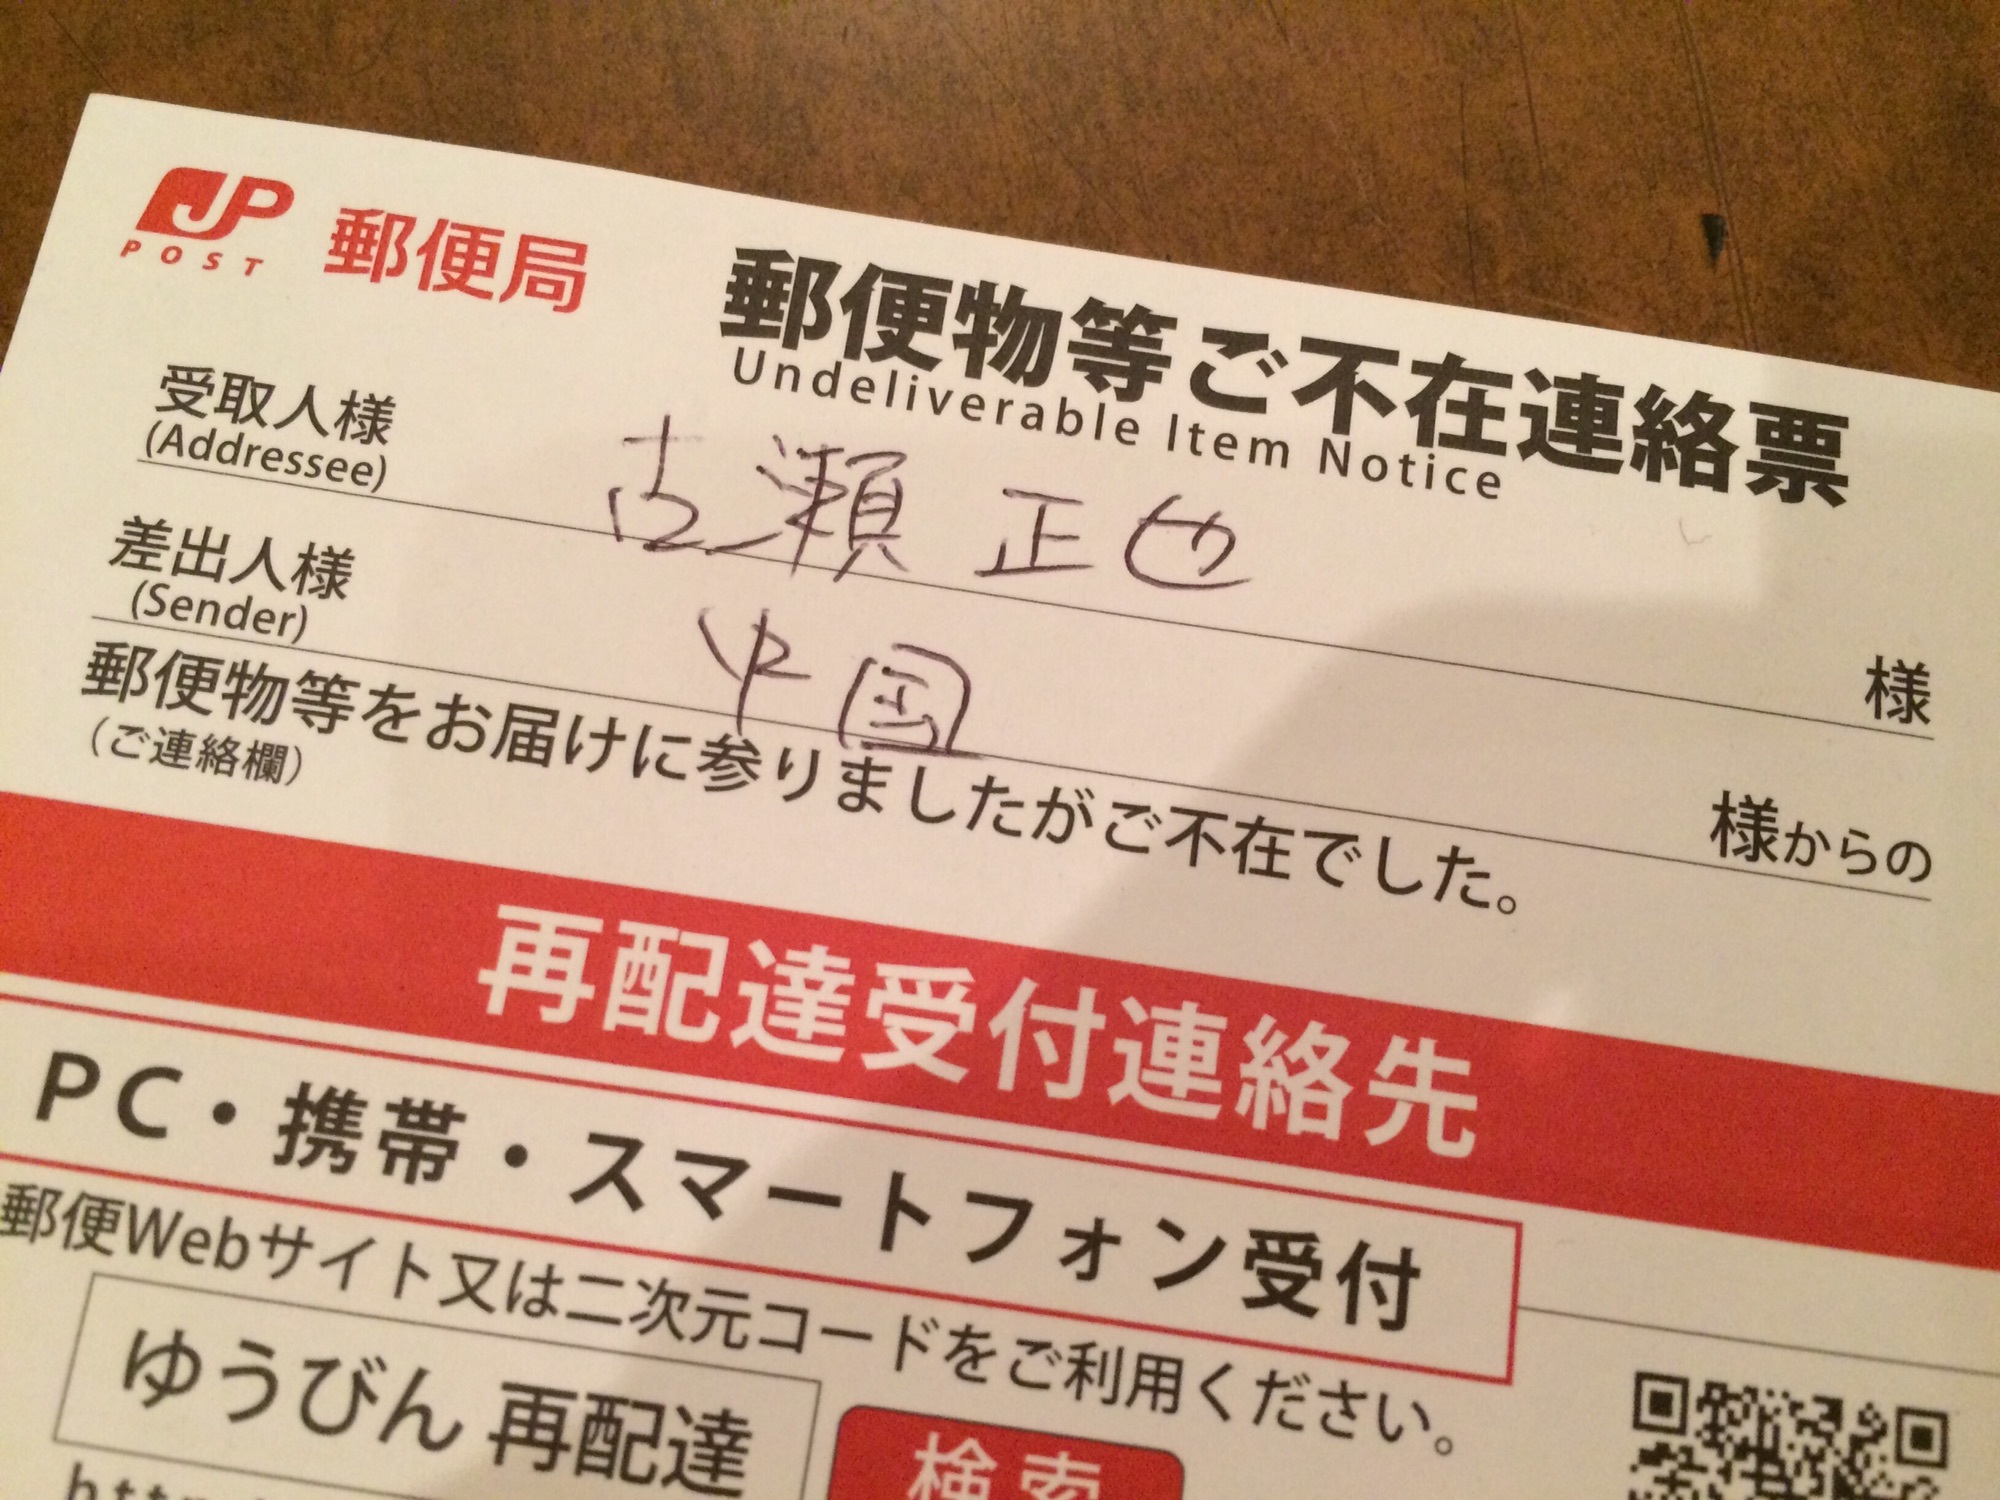 JP POST 郵便局
郵便物等ご不在連絡票
Undeliverable Item Notice
受取人様
(Addressee)
古瀬 正也 様
差出人様
(Sender)
中国 様からの
郵便物等をお届けに参りましたがご不在でした。
(ご連絡欄)
再配達受付連絡先
PC・携帯・スマートフォン受付
郵便Webサイト又は二次元コードをご利用ください。
ゆうびん 再配達
検索